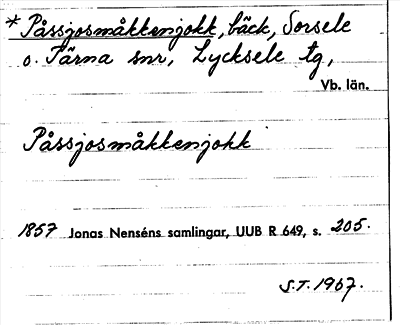 * Påssjosmåkkenjokk, bäck, Sorsele
o. Tärna snr, Lycksele tg,
Vb. län.
Påssjosmåkkenjokk
1857 Jonas Nenséns samlingar, UUB R 649, s. 205.
S.T. 1967.